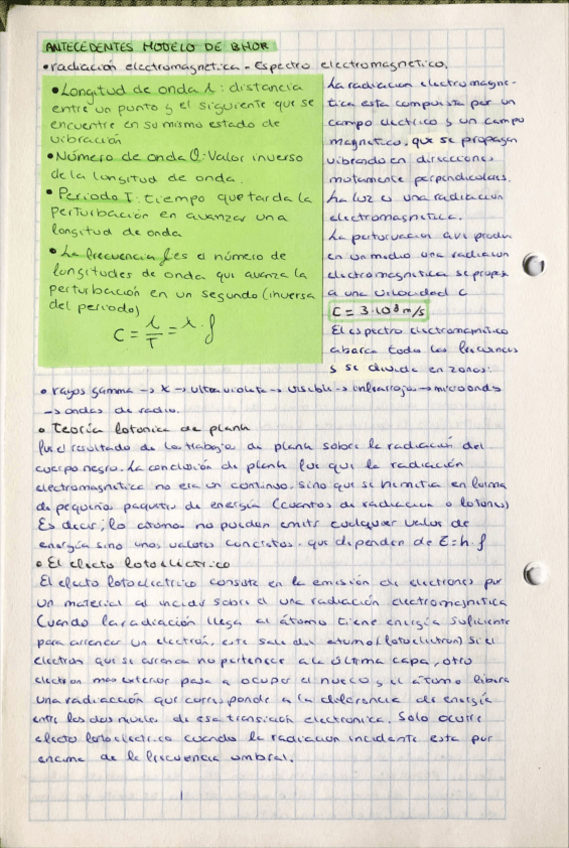 ANTECEDENTES MODELO DE BHOR
•radiación electromagnetica - Espectro electromagnetico.
•Longitud de onda λ: distancia
entre un punto y el siguiente que se
encuentre en su mismo estado de
vibración
•Número de onda ΰ: Valor inverso
de la longitud de onda.
•Periodo T: tiempo que tarda la
perturbación en avanzar una
longitud de onda
•La frecuencia f: es el número de
longitudes de onda que avanza la
perturbación en un segundo (inversa
del periodo)
C = λ/T = λ · f
La radiacion electromagne-
tica esta compuesta por un
campo electrico y un campo
magnetico, que se propagan
vibrando en direcciones
mutamente perpendiculares.
La luz es una radiación
electromagnetica.
La perturvacion que produce
en un medio una radiacion
electromagnetica se propaga
a una velocidad c
C = 3·10⁸ m/s
El espectro electromagnetico
abarca todas las frecuencias
y se divide en zonas:
• rayos gamma → X → ultravioleta → visible → infrarrojo → microondas
→ ondas de radio.
• Teoría fotonica de plank
fue el resultado de los trabajos de plank sobre la radiación del
cuerpo negro. La conclusión de plank fue que la radiación
electromagnetica no era un continuo, sino que se emitia en forma
de pequeños paquetes de energía (cuantos de radiacion o fotones)
Es decir; los atomos no pueden emitir cualquier valor de
energía sino unos valores concretos. que dependen de E=h·f
• El efecto fotoeléctrico
El efecto fotoelectrico consiste en la emisión de electrones por
un material al incidir sobre el una radiación electromagnetica
Cuando la radiación llega al átomo tiene energía suficiente
para arrancar un electrón, este sale del atomo (fotoelectron) Si el
electron que se arranca no pertenece a la última capa, otro
electron mas exterior pasa a ocupar el hueco y el átomo libera
una radiacción que corresponde a la diferencia de energía
entre los dos niveles de esa transición electronica. Solo ocurre
efecto fotoelectrico cuando la radiacion incidente esta por
encima de la frecuencia umbral.